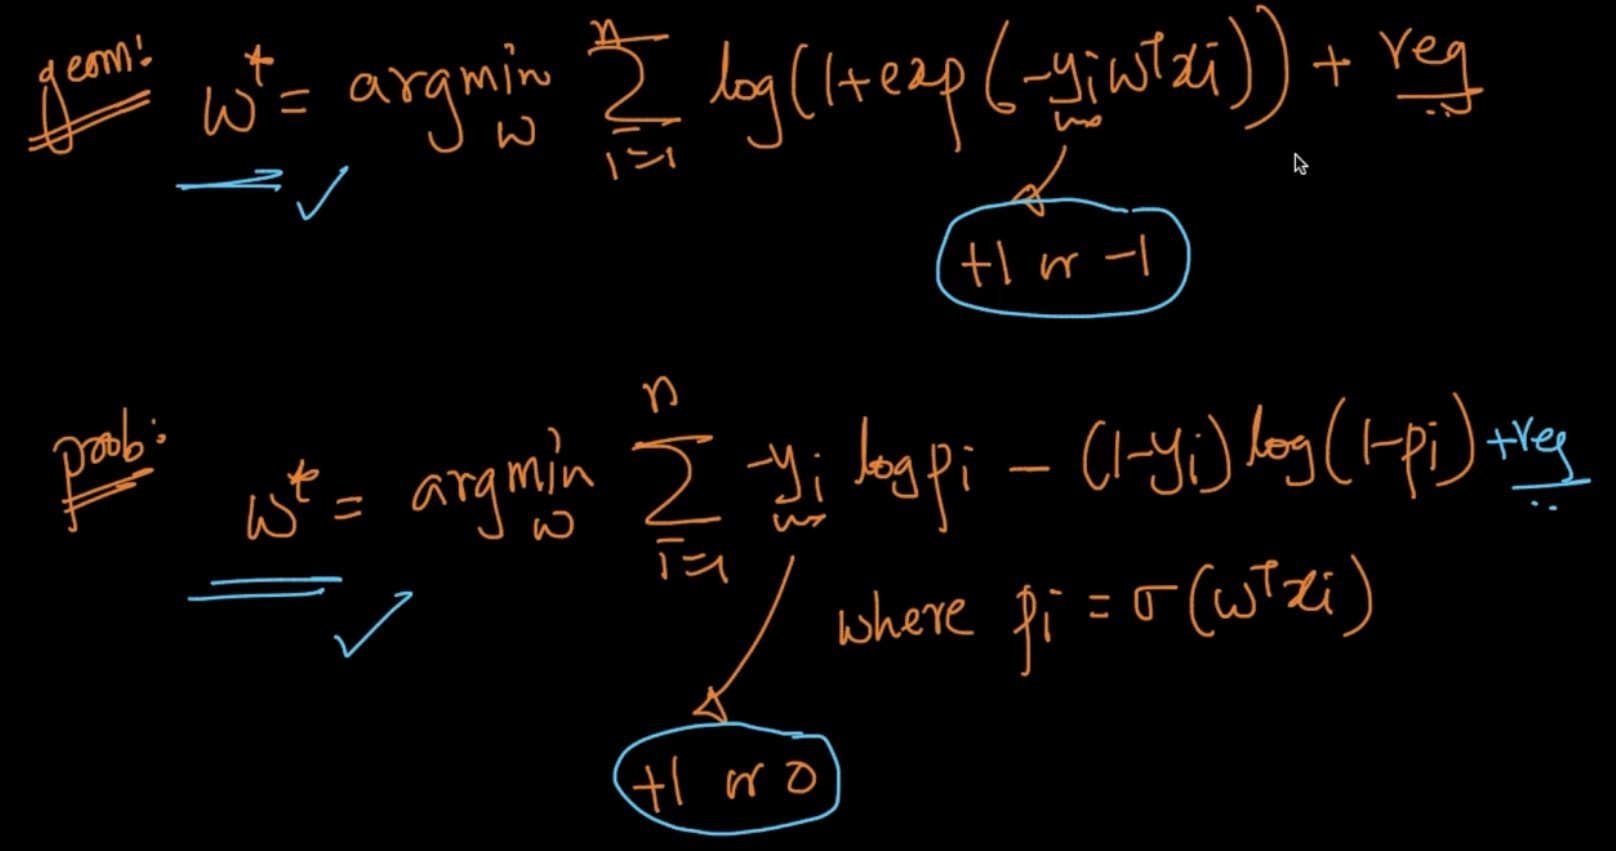 geom: w* = argmin_w Σ_{i=1}^{n} log(1+exp(-yᵢwᵀxᵢ)) + reg
+1 or -1
prob: w* = argmin_w Σ_{i=1}^{n} -yᵢ log pᵢ - (1-yᵢ) log(1-pᵢ) + reg
where pᵢ = σ(wᵀxᵢ)
+1 or 0